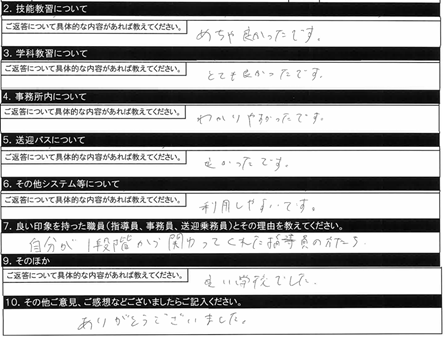 2. 技能教習について
ご返答について具体的な内容があれば教えてください。
めちゃ良かったです。
3. 学科教習について
ご返答について具体的な内容があれば教えてください。
とても良かったです。
4. 事務所内について
ご返答について具体的な内容があれば教えてください。
わかりやすかったです。
5. 送迎バスについて
ご返答について具体的な内容があれば教えてください。
良かったです。
6. その他システム等について
ご返答について具体的な内容があれば教えてください。
利用しやすいです。
7. 良い印象を持った職員（指導員、事務員、送迎乗務員）とその理由を教えてください。
自分が1段階から関わってくれた指導員の方たち
9. そのほか
ご返答について具体的な内容があれば教えてください。
良い学校でした。
10. その他ご意見、ご感想などございましたらご記入ください。
ありがとうございました。